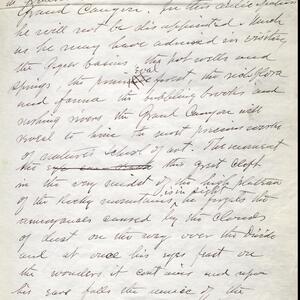 Grand Canyon. In this anticipation
he will not be disappointed. Much
as he may have admired in visiting
the Geyser basins the hot wells and
springs, the primeval forest the
and fauna the bubbling brooks and
rushing rivers the Grand Canyon will
reveal to him the most precious works
of natures school of art. The moment
the this great cleft
in the very midst of the high plateau
of the Rocky mountains is in sight he forgets the
annoyances caused by the clouds
of dust on the way over the Divide
and at once his eyes feast on
the wonders it contains and upon
his ears falls the music of the